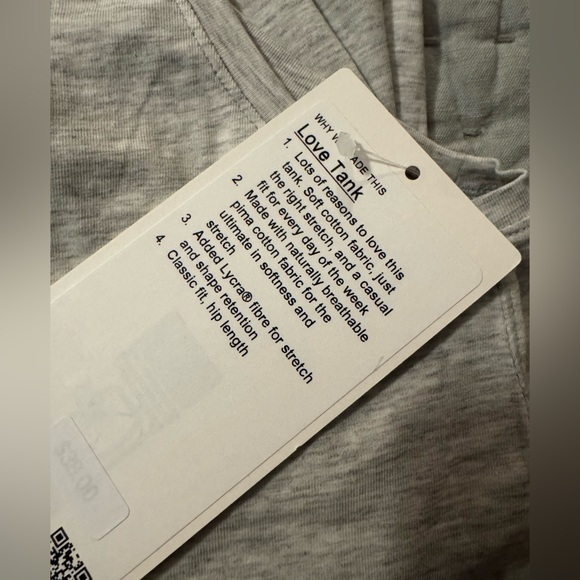 WHY W ADE THIS
Love Tank
1. Lots of reasons to love this
tank. Soft cotton fabric, just
the right stretch, and a casual
fit for every day of the week
2. Made with naturally breathable
pima cotton fabric for the
ultimate in softness and
stretch
3. Added Lycra® fibre for stretch
and shape retention
4. Classic fit, hip length
$38.00